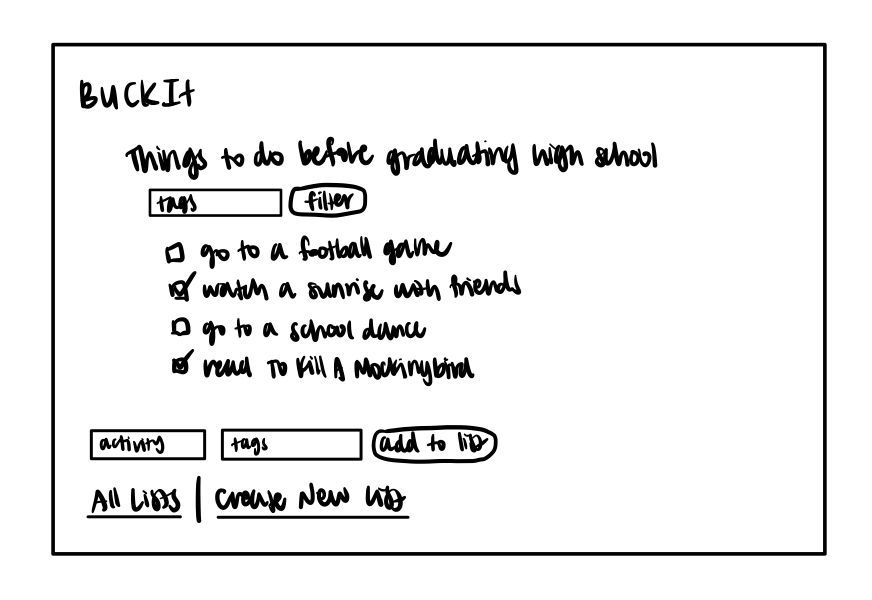 BUCKIt
Things to do before graduating high school
tags filter
go to a football game
watch a sunrise with friends
go to a school dance
read To Kill A Mockingbird
activity tags add to list
All Lists | Create New List